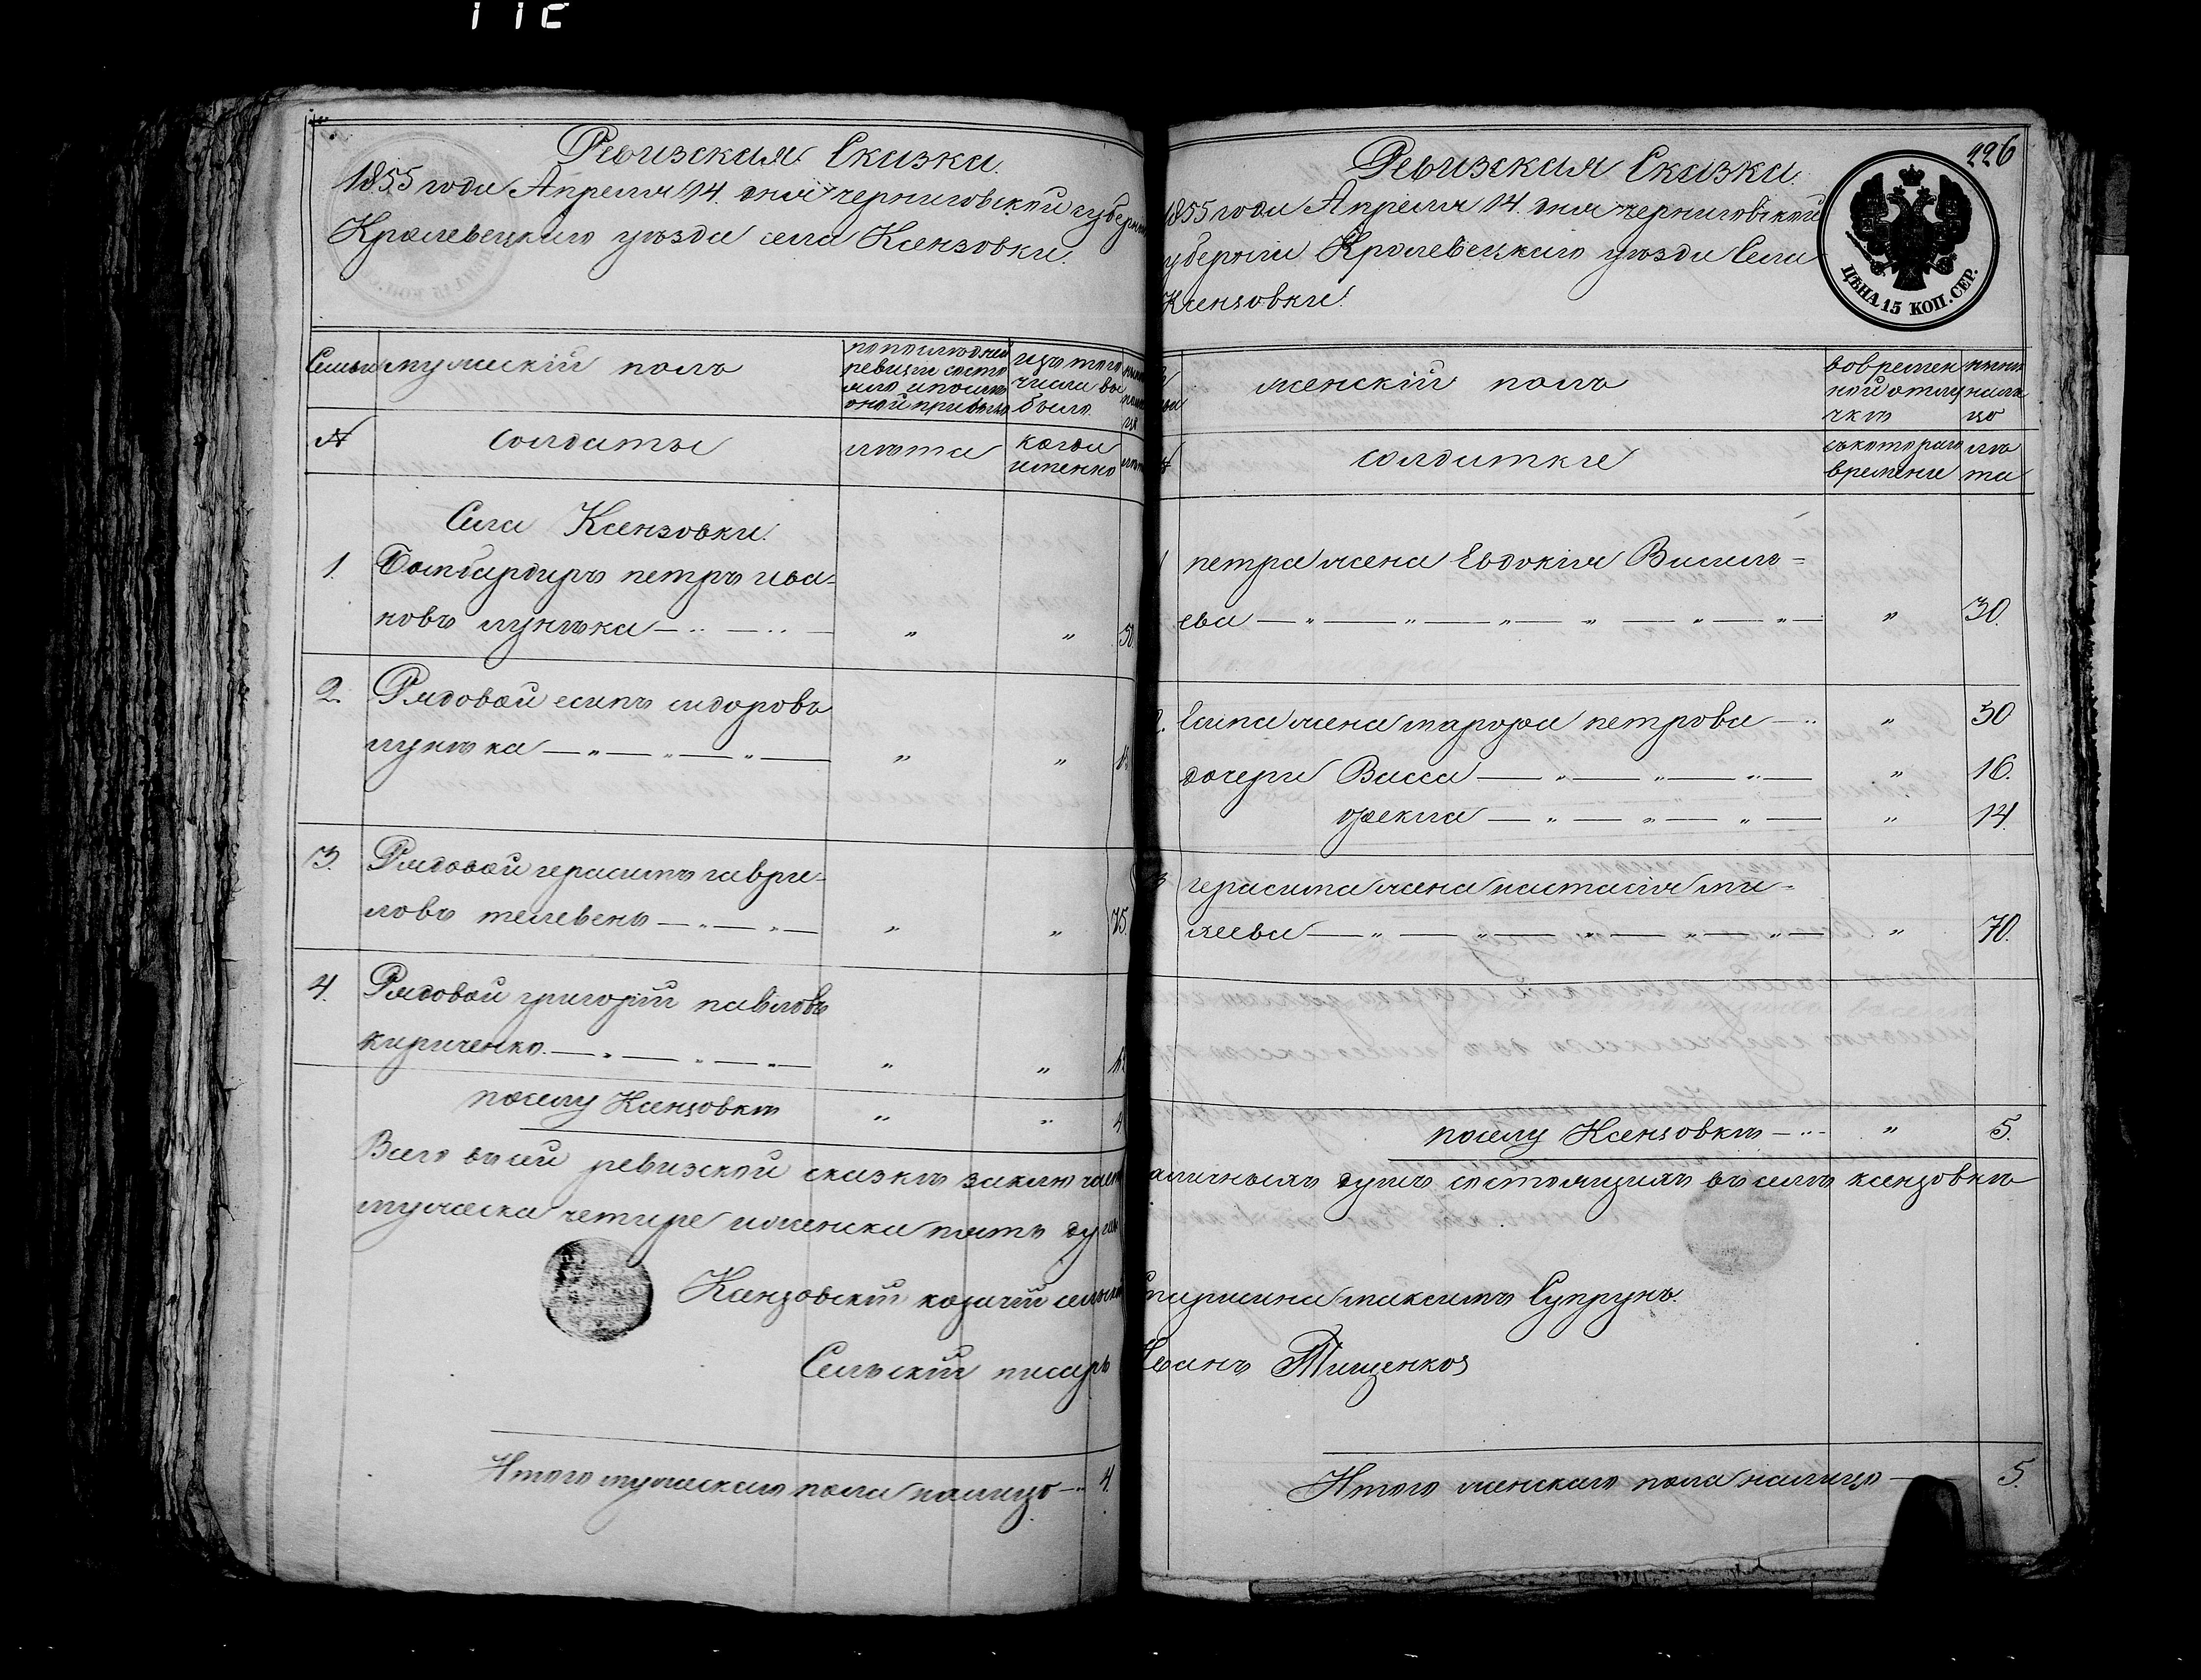 Ревизская Сказка.
1855 года Апреля 14. дня черниговской губерн
Кролевецкаго уезда села Ксензовки.
Семьи
мужескій полъ
по последней
ревизіи состо
яло и после
оной прибыло
изъ того
числа вы
было.
№
солдаты
лета
когда
именно
Села Ксензовки.
1. Бомбардиръ петръ ива-
новъ лунька — „ — „ — „ „ 50.
2. Рядовой есипъ сидоровъ
лунька — „ — „ — „ — „ „
3. Рядовой герасимъ гаври-
ловъ телевень — „ — „ — „ „ 75.
4. Рядовой григорій павловъ
кириченко. — „ — „ — „ — „ „
поселу Ксензовкѣ „ „ 4
Всего въ сей ревизской сказкѣ заключает
мужеска четире и женска пять душъ
Ксензовскій козачій сельскій
Сельскій писарь
Итого мужескаго пола налицо — „ 4.
226
Ревизская Сказка.
1855 года Апреля 14. дня черниговской
губерніи Кролевецкаго уезда Села
Ксензовки.
ЦѢНА 15 КОП. СЕР.
женскій полъ
во времен
ной отлу
чкѣ
ныне
нали
цо
солдатки
съ котораго
времени
ле
та
1 петра жена Евдокія Василь=
ева — „ — „ — „ — „ — „ — „ — „ 30.
2. Есипа жена марфа петрова — „ „ 50
дочери Васса — „ — „ — „ — „ 16.
фекла — „ — „ — „ — „ 14.
3 герасима жена настасія ми-
хеева — „ — „ — „ — „ — „ — „ 70.
поселу Ксензовкѣ — „ — „ 5.
наличныхъ душъ состоящихъ въ селѣ ксензовкѣ
Старшина максимъ Супрунъ.
Иванъ Тищенко
Итого женскаго пола налицо — 5.